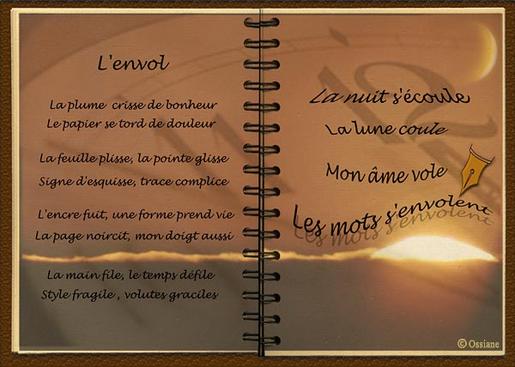 L'envol
La plume crisse de bonheur
Le papier se tord de douleur
La feuille plisse, la pointe glisse
Signe d'esquisse, trace complice
L'encre fuit, une forme prend vie
La page noircit, mon doigt aussi
La main file, le temps défile
Style fragile, volutes graciles
La nuit s'écoule
La lune coule
Mon âme vole
Les mots s'envolent
© Ossiane